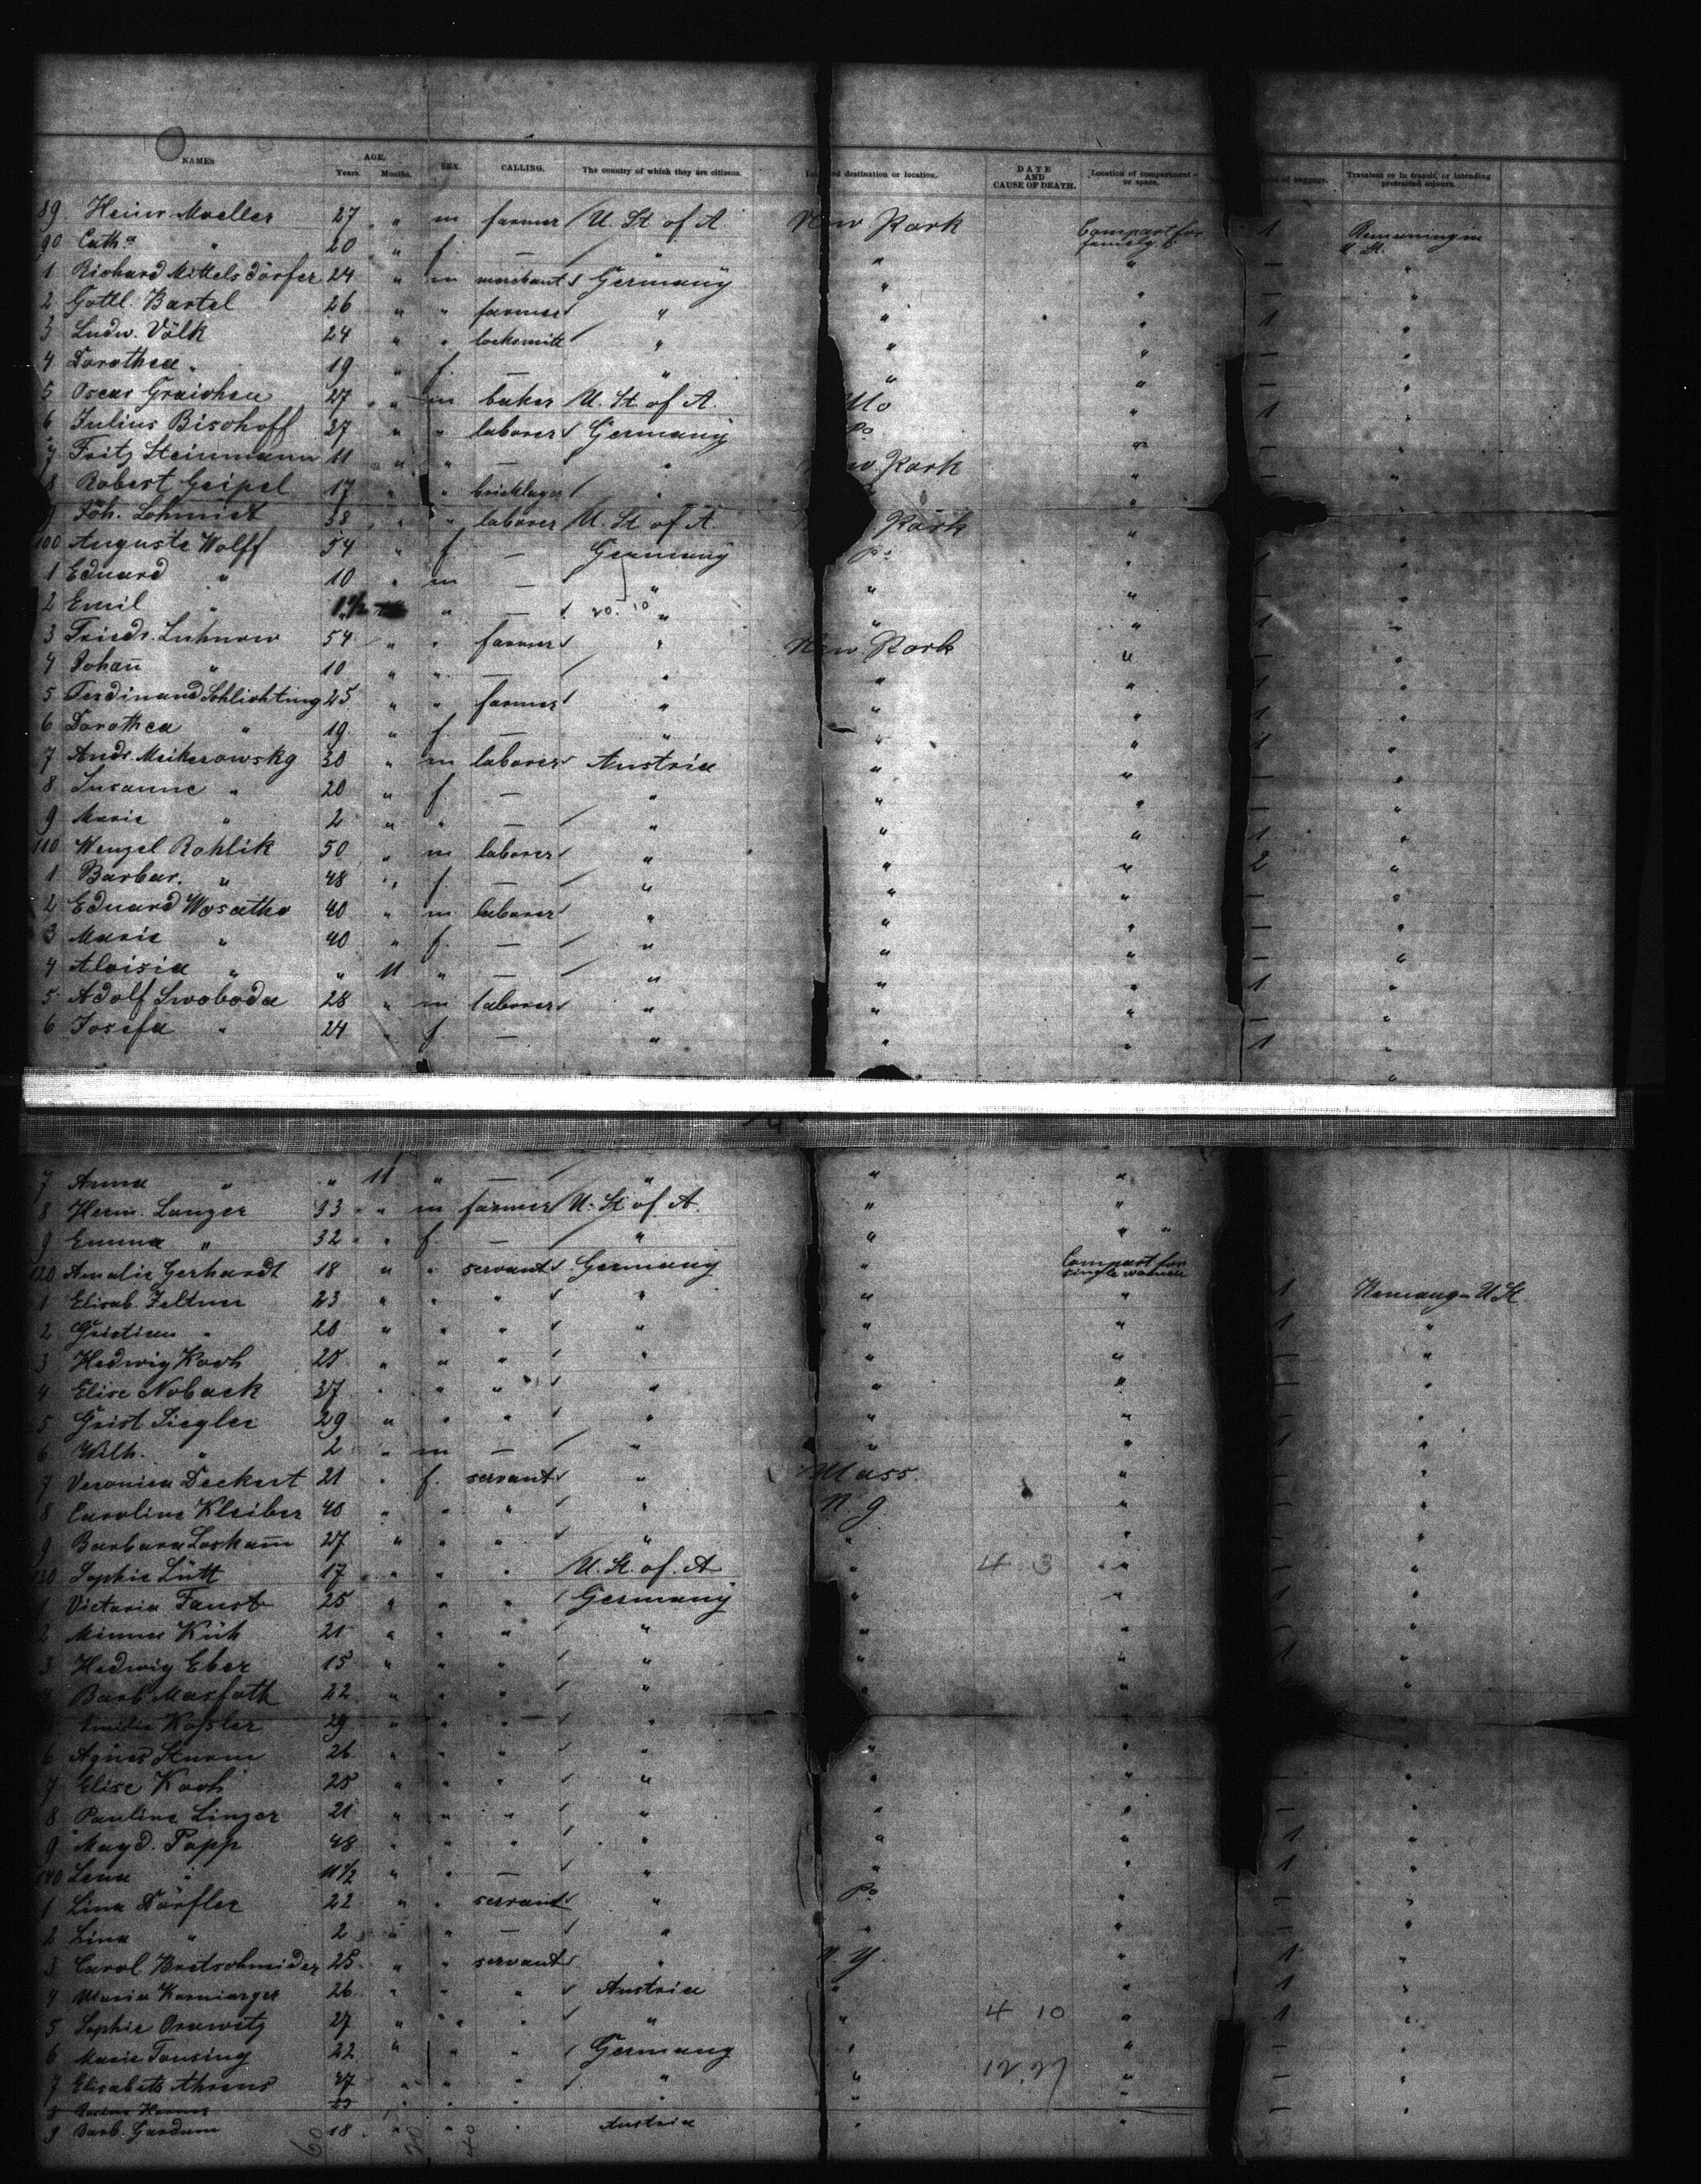 NAMES AGE. Years. Months. SEX. CALLING. The country of which they are citizens. destination or location. DATE AND CAUSE OF DEATH. Location of compartment or space. of baggage. Transient or in transit, or intending protracted sojourn.
89 Heinr. Moeller 27 " m farmer / U. St of A New York Compart for family 1 Remaining in U. St.
90 Cath.a " 20 " f. — / " " " — "
1 Richard Mittelsdörfer 24 " m merchant / Germany " " — "
2 Gottl. Bartel 26 " " farmer / " " " 1 "
3 Ludw. Völk 24 " " locksmith / " " " — "
4 Dorothea " 19 " f. — " " " — "
5 Oscar Graichen 27 " m baker / U. St. of A. Mo " 1 "
6 Julius Bischoff 37 " " laborer / Germany " — "
7 Fritz Steinmann 11 " " — " New York " — "
8 Robert Geipel 17 " " bricklayer / " "
9 Joh. Schmidt 38 " " laborer / U. St of A. York "
100 Auguste Wolff 54 " f. — Germany Pa "
1 Eduard " 10 " m — " " "
2 Emil " " — / 20. 10 " " " 1 "
3 Friedr. Luhnow 54 " " farmer / " New York " — "
4 Johan̄ " 10 " " — / " " " 1 "
5 Ferdinand Schlichting 25 " " farmer / " " " 1 "
6 Dorothea " 19 " f. — " " " 1 "
7 Andr. Meikerowsky 30 " m laborer / Austria " " — "
8 Susanne " 20 " f. — " " " — "
9 Marie " 2 " " — / " " " 1 "
110 Wenzel Rohlik 50 " m laborer / " " " 2 "
1 Barbar. " 48 " f. — / " " " — "
2 Eduard Wosatko 40 " m laborer / " " " — "
3 Marie " 40 " f. — / " " " — "
4 Aloisia " " 11 " — / " " " 1 "
5 Adolf Swoboda 28 " m laborer / " " " — "
6 Josefa " 24 " f. — " " " 1 "
7 Anna " " 11 " — / " " "
8 Herm. Langer 33 " m farmer / U. St of A. " "
9 Emma " 32 " f. — / " " " "
120 Amalie Gerhardt 18 " " servant / Germany " Compart for single women
1 Elisab. Zeltner 23 " " " / " " " 1 U St.
2 Cristian " 20 " " " / " " " 1 "
3 Hedwig Koch 25 " " " / " " " — "
4 Elise Noback 37 " " " / " " " — "
5 Crist Siegler 29 " " " / " " " — "
6 Wilh. " 2 " m — / " " " 1 "
7 Veronica Deckert 21 " f. servant / " Mass. " — "
8 Caroline Kleiber 40 " " " / " N. Y. " — "
9 Barbara Loskam̄ 27 " " " / " " " — "
130 Sophie Lütt 17 " " " U. St. of. A " 4 3 " — "
1 Victoria Faust 25 " " " / Germany " " 1 "
2 Minna Küh 21 " " " / " " " — "
3 Hedwig Eber 15 " " " / " " " 1 "
4 Barb. Masfoth 22 " " " / " " "
Emilie Kofsler 29 " " " / " "
6 Agnes Sturm 26 " " " / " " " "
7 Elise Koch 25 " " " / " " " — "
8 Pauline Linzer 21 " " " / " " " — "
9 Magd. Popp 48 " " " / " " " 1 "
140 Lena " 11 1/2 " " — / " " " 1 "
1 Lina Dörfler 22 " " servant / " Pa " — "
2 Lina " 2 " " — / " " " — "
3 Carol. Bretschneider 25 " " servant / " N. Y. " 1 "
4 Maria 26 " " " / Austria " " 1 "
5 Sophie Orawetz 27 " " " / " " 4 10 " 1 "
6 Marie Tonsing 22 " " " / Germany " " — "
7 Elisabeth Ahrens 47 " " " / " " 12. 27 " — "
8 " " "
9 Barb. 18 " " " Austria " "
60 20 40